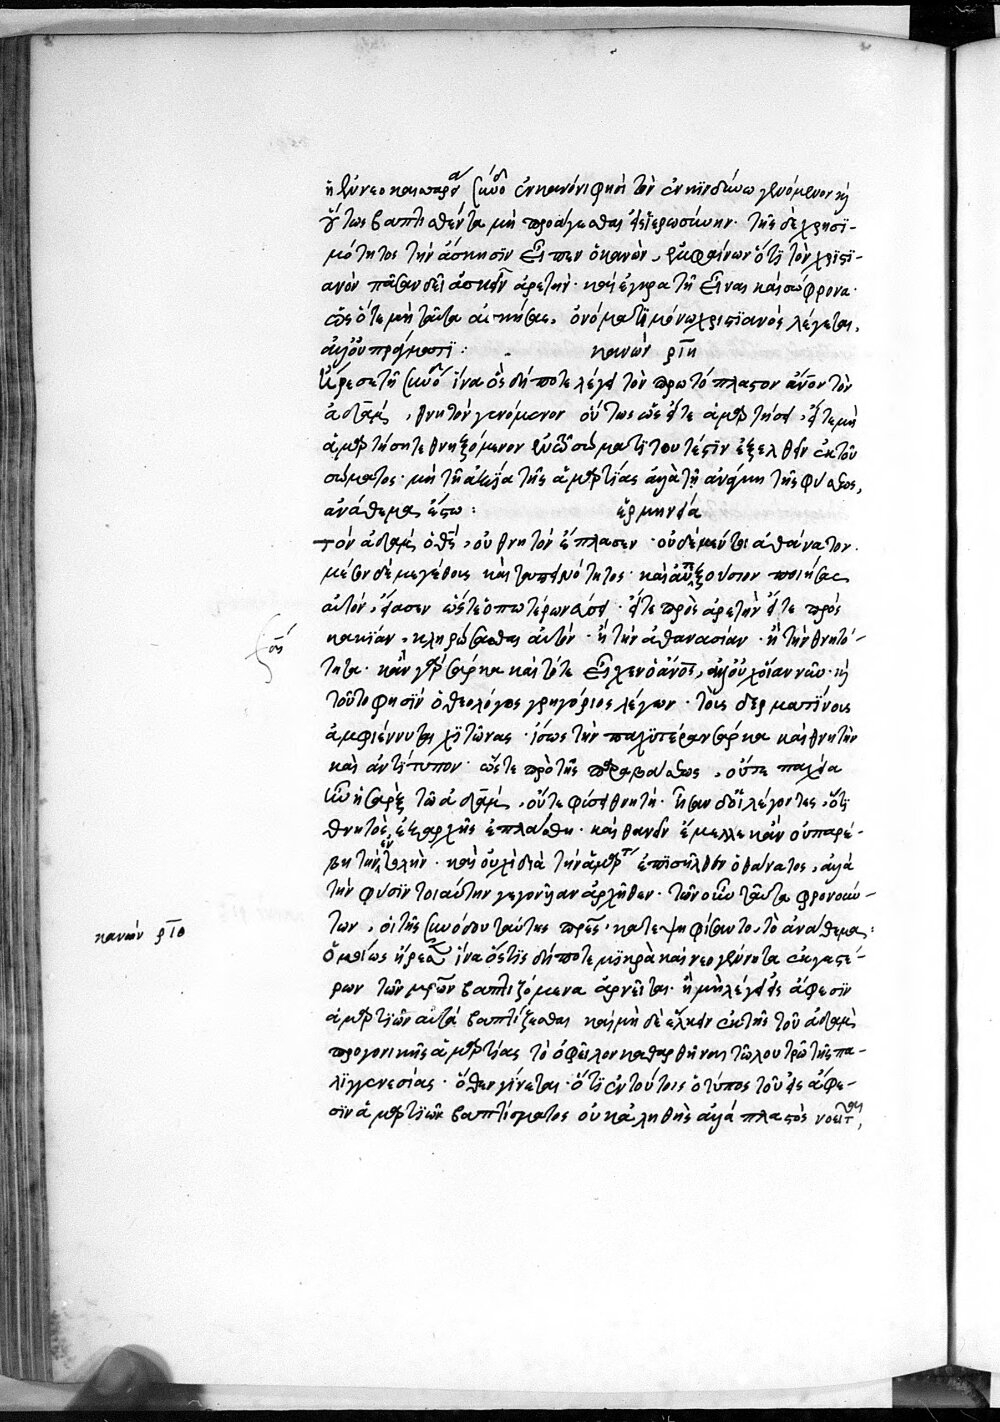 ἡ ἐν νεοκαισαρεία σύνοδος ἐν κανόνι φησὶ τὸν ἐν κινδύνω γενόμενον καὶ
οὕτως βαπτισθέντα μὴ προάγεσθαι εἰς ἱερωσύνην· τῆς δὲ χρησι-
μότητος τὴν ἄσκησϊν εἶπεν ὁ κανὼν, ἐμφαίνων ὅτι τὸν χριστι-
ανὸν πᾶσαν δεῖ ἀσκεῖν ἀρετὴν· καὶ ἐγκρατῆ εἶναι καὶ σώφρονα·
ὡς ὅτε μὴ ταῦτα ἀσκήσας, ὀνόματι μόνω χριστιανὸς λέγεται,
ἀλλ' οὐ πράγματι: κανὼν ρῑη
ἤρεσε τῆ συνόδω ἵνα ὃς δήποτε λέγει τὸν πρωτόπλαστον ἄνον τὸν
ἀδὰμ, θνητὸν γενόμενον οὕτως ὡς εἴτε ἁμαρτήσει, εἴτε μὴ
ἁμαρτήση τεθνηξόμενον ἐν τῶ σώματι τουτέστϊν ἐξελθεῖν ἐκ τοῦ
σώματος· μὴ τῆ ἀξία τῆς ἁμαρτίας ἀλλὰ τῆ ἀνάγκη τῆς φύσεως,
ἀνάθεμα ἔστω: ἑρμηνεία
τὸν ἀδὰμ ὁ θς, οὐ θνητὸν ἔπλασεν· οὐδὲ μέντοι ἀθάνατον·
μέσον δὲ μεγέθους καὶ ταπεινότητος· καὶ αὐτεξούσιον ποιήσας
αὐτὸν, εἴασεν ὥστε ὁποτέρων · εἴτε πρὸς ἀρετὴν εἴτε πρὸς
κακίαν, κληρώσασθαι αὐτὸν· ἢ τὴν ἀθανασίαν· ἢ τὴν θνητό-
τητα· κἂν γὰρ σάρκα καὶ τότε εἶχεν ὁ ἄνος, ἀλλ' οὐχ οἵαν νῦν· καὶ
τοῦτο φησϊν ὁ θεολόγος γρηγόριος λέγων· τοὺς δερματίνους
ἀμφιέννυται χιτῶνας· ἴσως τὴν παχυτέραν σάρκα καὶ θνητὴν
καὶ ἀντίτυπον· ὥστε πρὸ τῆς παραβάσεως, οὔτε παχεῖα
ἦν ἡ σὰρξ τῶ ἀδὰμ, οὔτε φύσει θνητὴ· ἦσαν δὲ οἱ λέγοντες, ὅτι
θνητὸς ἐξ ἀρχῆς ἐπλάσθη· καὶ θανεῖν ἔμελλε κἂν οὐ παρέ-
βη τὴν ἐντολὴν· καὶ οὐχὶ διὰ τὴν ἁμαρτίαν ἐπεισῆλθεν ὁ θάνατος, ἀλλὰ
τὴν φύσϊν τοιαύτην γεγονῆαν ἀρχῆθεν· τῶν οὖν ταῦτα φρονούν-
των, οἱ τῆς συνόδου ταύτης πρες· κατεψηφίσαντο, τὸ ἀνάθεμα:
κανὼν ρῑθ
ὁμοίως ἤρεσεν ἵνα ὅστις δήποτε μικρὰ καὶ νεογέννητα ἐκ γαστέ-
ρων τῶν μρων βαπτιζόμενα ἀρνεῖται· ἢ μὴ λέγει εἰς ἄφεσϊν
ἁμαρτιῶν αὐτὰ βαπτίζεσθαι καὶ μὴ δὲ ἕλκειν ἐκ τῆς τοῦ ἀδὰμ
προγονικῆς ἁμαρτίας τὸ ὀφεῖλον καθαρθῆναι τῶ λουτρῶ τῆς πα-
λιγγενεσίας· ὅθεν γίνεται· ὅτι ἐν τούτοις ὁ τύπος τοῦ εἰς ἄφε-
σϊν ἁμαρτιῶν βαπτίσματος οὐκ ἀληθὴς ἀλλὰ πλαστὸς νοεῖται,